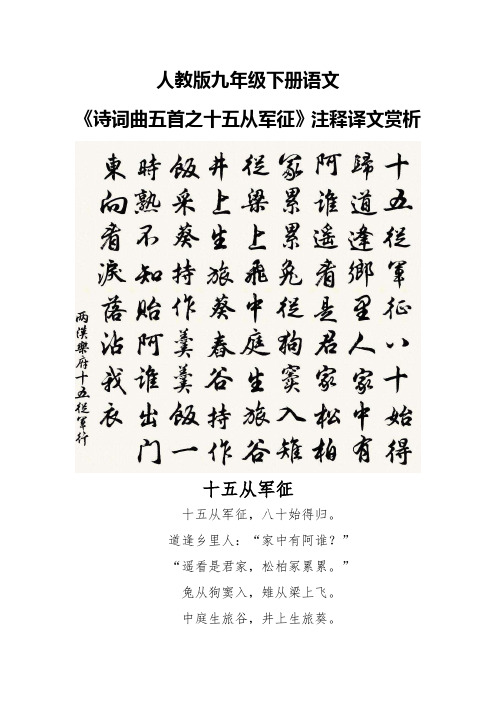 人教版九年级下册语文
《诗词曲五首之十五从军征》注释译文赏析
十五從軍征八十始得
歸道逢鄉里人家中有
阿誰遥看是君家松柏
冢累累兔從狗竇入雉
從梁上飛中庭生旅谷
井上生旅葵舂谷持作
飯采葵持作羹羹飯一
時熟不知貽阿誰出門
東向看淚落沾我衣
两漢樂府十五從軍行
十五从军征
十五从军征，八十始得归。
道逢乡里人：“家中有阿谁？”
“遥看是君家，松柏冢累累。”
兔从狗窦入，雉从梁上飞。
中庭生旅谷，井上生旅葵。